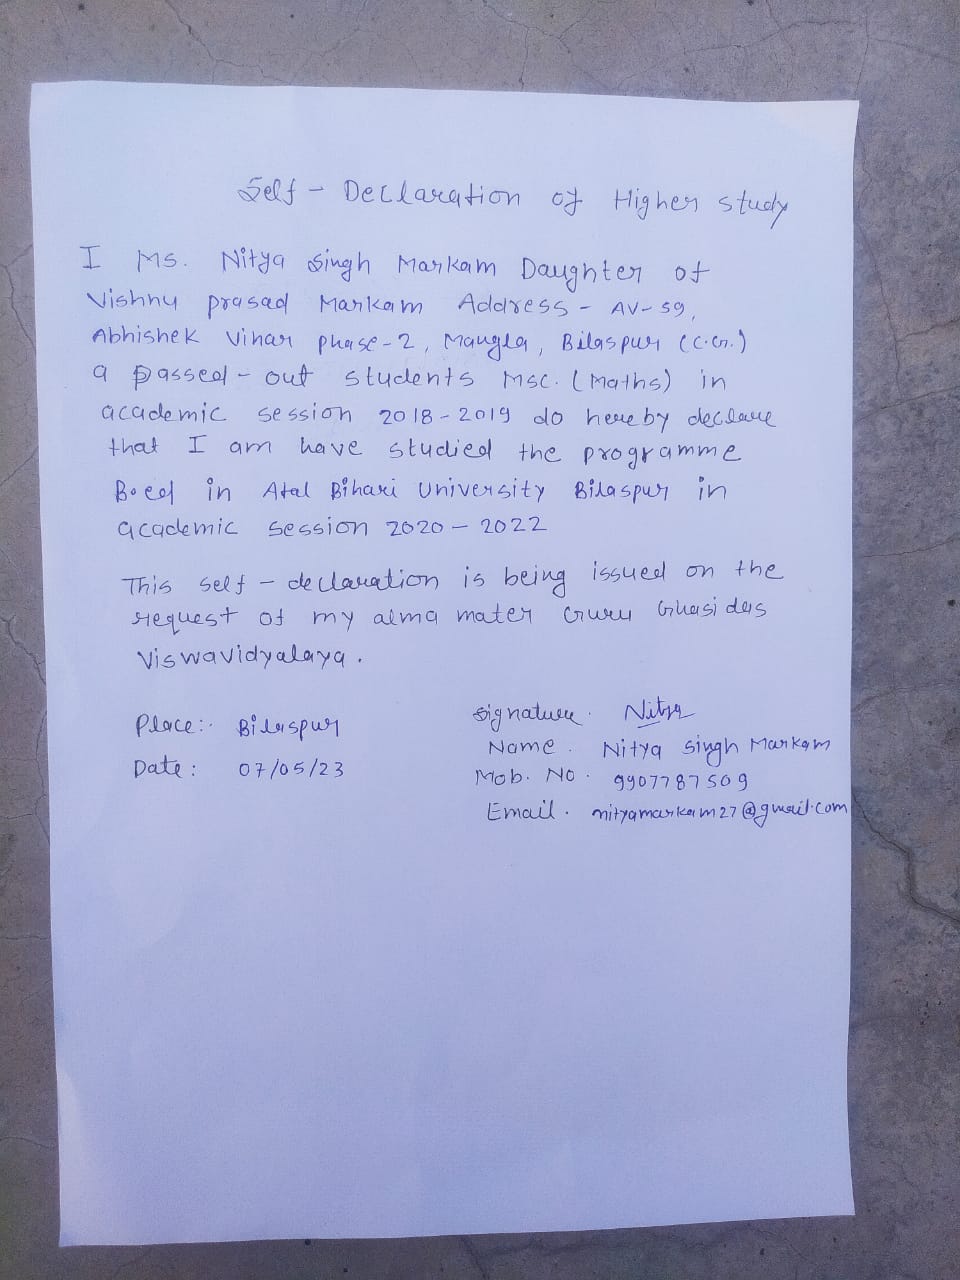 Self - Declaration of Higher study
I Ms. Nitya Singh Markam Daughter of
Vishnu prasad Markam Address - AV-59,
Abhishek Vihar phase-2, Mangla, Bilaspur (C.G.)
a passed-out students Msc. (Maths) in
academic session 2018-2019 do hereby declare
that I am have studied the programme
B.ed in Atal Bihari University Bilaspur in
academic session 2020-2022
This self-declaration is being issued on the
request of my alma mater Guru Ghasidas
Viswavidyalaya.
Place:- Bilaspur
Date: 07/05/23
Signature. Nitya
Name. Nitya Singh Markam
Mob. No. 9907787509
Email. nityamarkam27@gmail.com